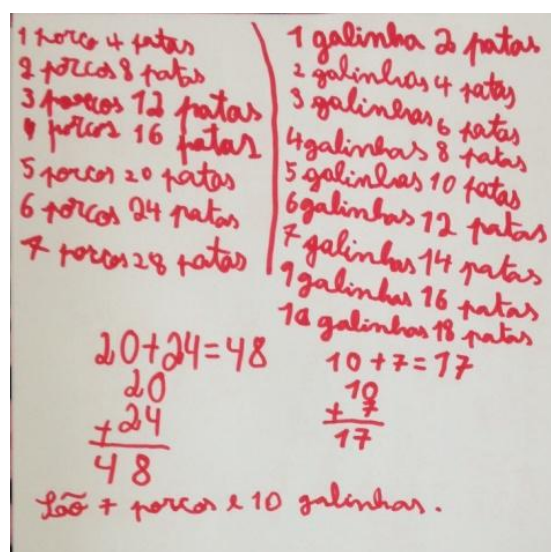 1 porco 4 patas
2 porcos 8 patas
3 porcos 12 patas
4 porcos 16 patas
5 porcos 20 patas
6 porcos 24 patas
7 porcos 28 patas
1 galinha 2 patas
2 galinhas 4 patas
3 galinhas 6 patas
4 galinhas 8 patas
5 galinhas 10 patas
6 galinhas 12 patas
7 galinhas 14 patas
9 galinhas 16 patas
10 galinhas 18 patas
20+24=48
20
+24
48
10+7=17
10
+ 7
17
São 7 porcos e 10 galinhas.